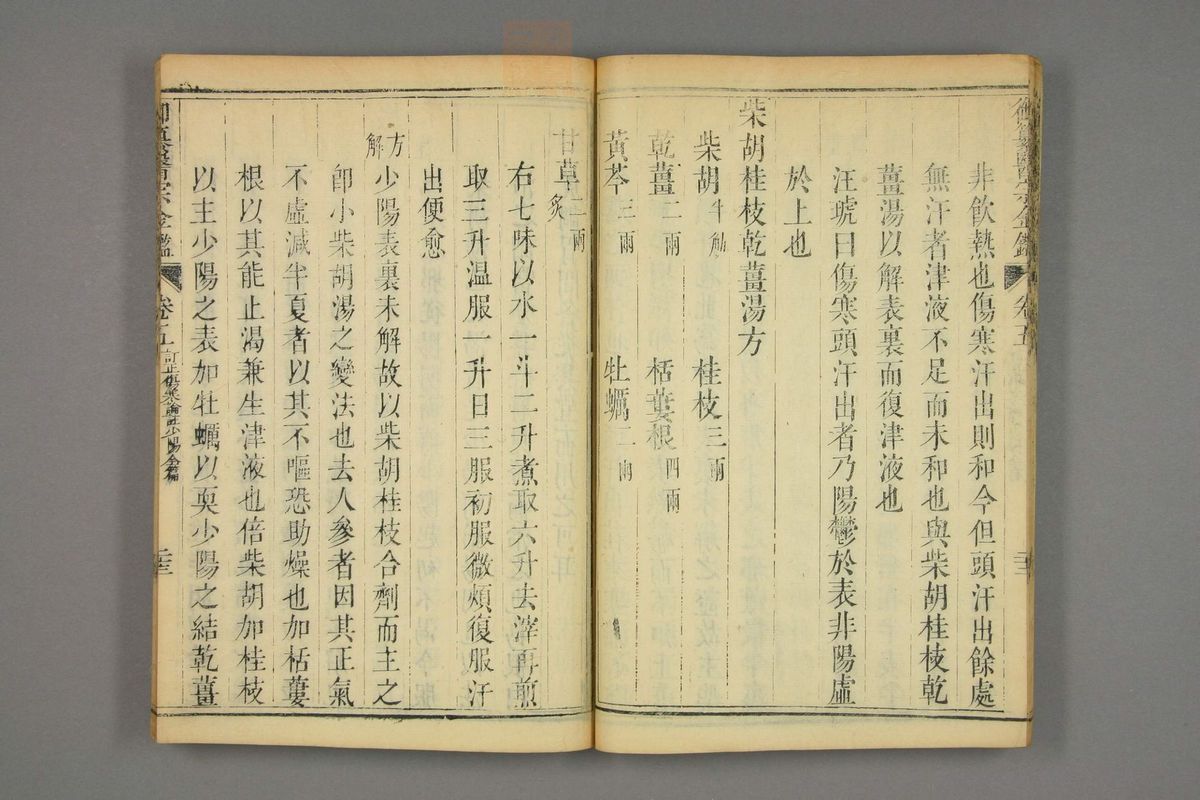 御纂醫宗金鑑 卷五 二十三
非飲熱也傷寒汗出則和今但頭汗出餘處
無汗者津液不足而未和也與柴胡桂枝乾
薑湯以解表裏而復津液也
汪琥曰傷寒頭汗出者乃陽鬱於表非陽虛
於上也
柴胡桂枝乾薑湯方
柴胡半觔 桂枝三兩
乾薑二兩 栝蔞根四兩
黃芩三兩 牡蠣二兩
甘草二兩炙
右七味以水一斗二升煮取六升去滓再煎
取三升温服一升日三服初服微煩復服汗
出便愈
方解 少陽表裏未解故以柴胡桂枝合劑而主之
卽小柴胡湯之變法也去人參者因其正氣
不虛減半夏者以其不嘔恐助燥也加栝蔞
根以其能止渴兼生津液也倍柴胡加桂枝
以主少陽之表加牡蠣以耎少陽之結乾薑
御纂醫宗金鑑 卷五 訂正傷寒論註少陽全篇 二十三